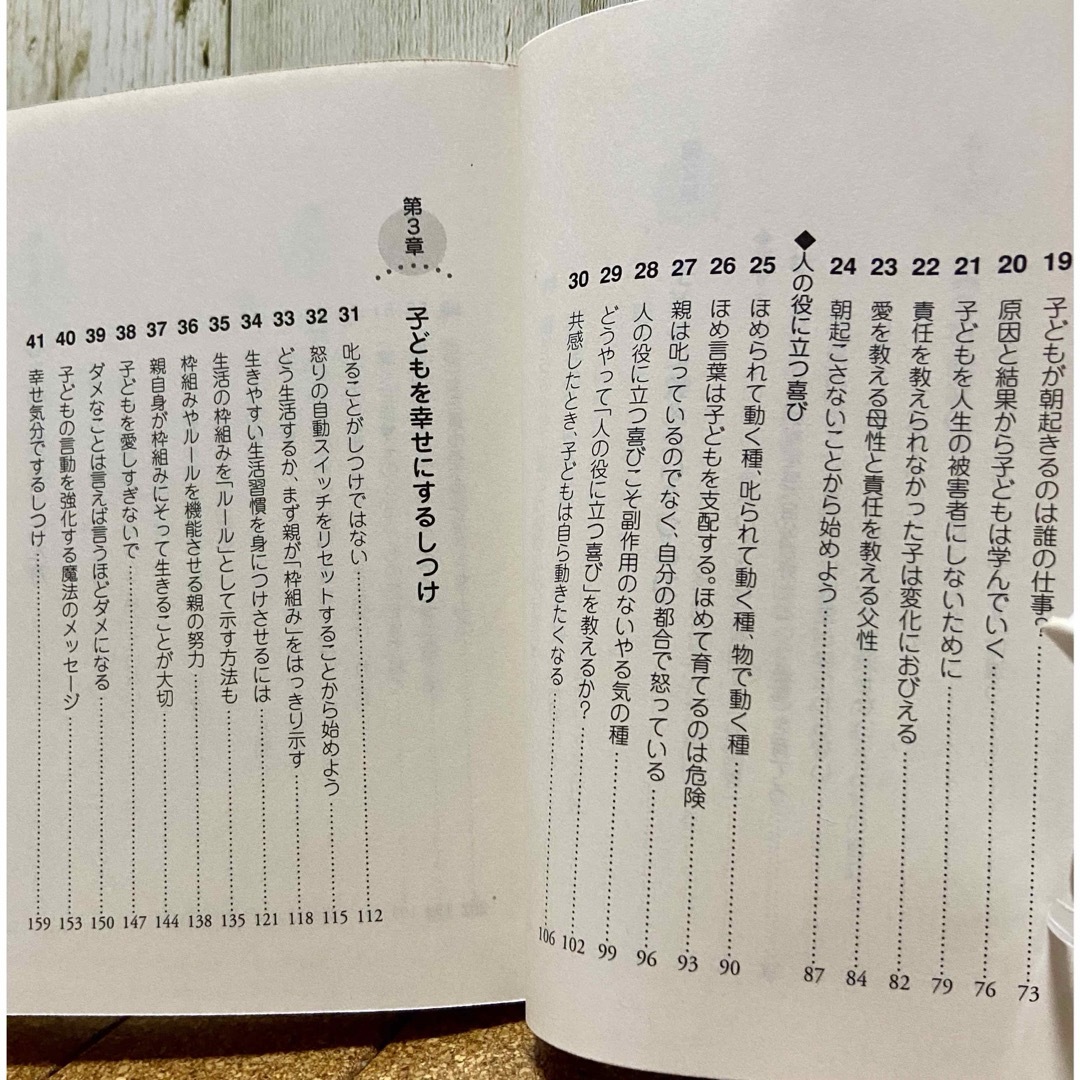 19 子どもが朝起きるのは誰の仕事?……73
20 原因と結果から子どもは学んでいく……76
21 子どもを人生の被害者にしないために……79
22 責任を教えられなかった子は変化におびえる……82
23 愛を教える母性と責任を教える父性……84
24 朝起こさないことから始めよう……87
◆人の役に立つ喜び
25 ほめられて動く種、叱られて動く種、物で動く種……90
26 ほめ言葉は子どもを支配する。ほめて育てるのは危険……93
27 親は叱っているのでなく、自分の都合で怒っている……96
28 人の役に立つ喜びこそ副作用のないやる気の種……99
29 どうやって「人の役に立つ喜び」を教えるか?……102
30 共感したとき、子どもは自ら動きたくなる……106
第3章 子どもを幸せにするしつけ
31 叱ることがしつけではない……112
32 怒りの自動スイッチをリセットすることから始めよう……115
33 どう生活するか、まず親が「枠組み」をはっきり示す……118
34 生きやすい生活習慣を身につけさせるには……121
35 生活の枠組みを「ルール」として示す方法も……135
36 枠組みやルールを機能させる親の努力……138
37 親自身が枠組みにそって生きることが大切……144
38 子どもを愛しすぎないで……147
39 ダメなことは言えば言うほどダメになる……150
40 子どもの言動を強化する魔法のメッセージ……153
41 幸せ気分でするしつけ……159